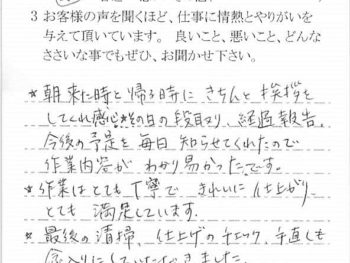 3 お客様の声を聞くほど、仕事に情熱とやりがいを
与えて頂いています。 良いこと、悪いこと、どんな
ささいな事でもぜひ、お聞かせ下さい。
*朝来た時と帰る時にきちんと挨拶を
してくれ感心。その日の段取り、経過報告、
今後の予定を毎日知らせてくれたので
作業内容がわかり易かったです。
*作業はとても丁寧できれいに仕上がり、
とても満足しています。
*最後の清掃、仕上げのチェック、手直しも
念入りにしていただきました。